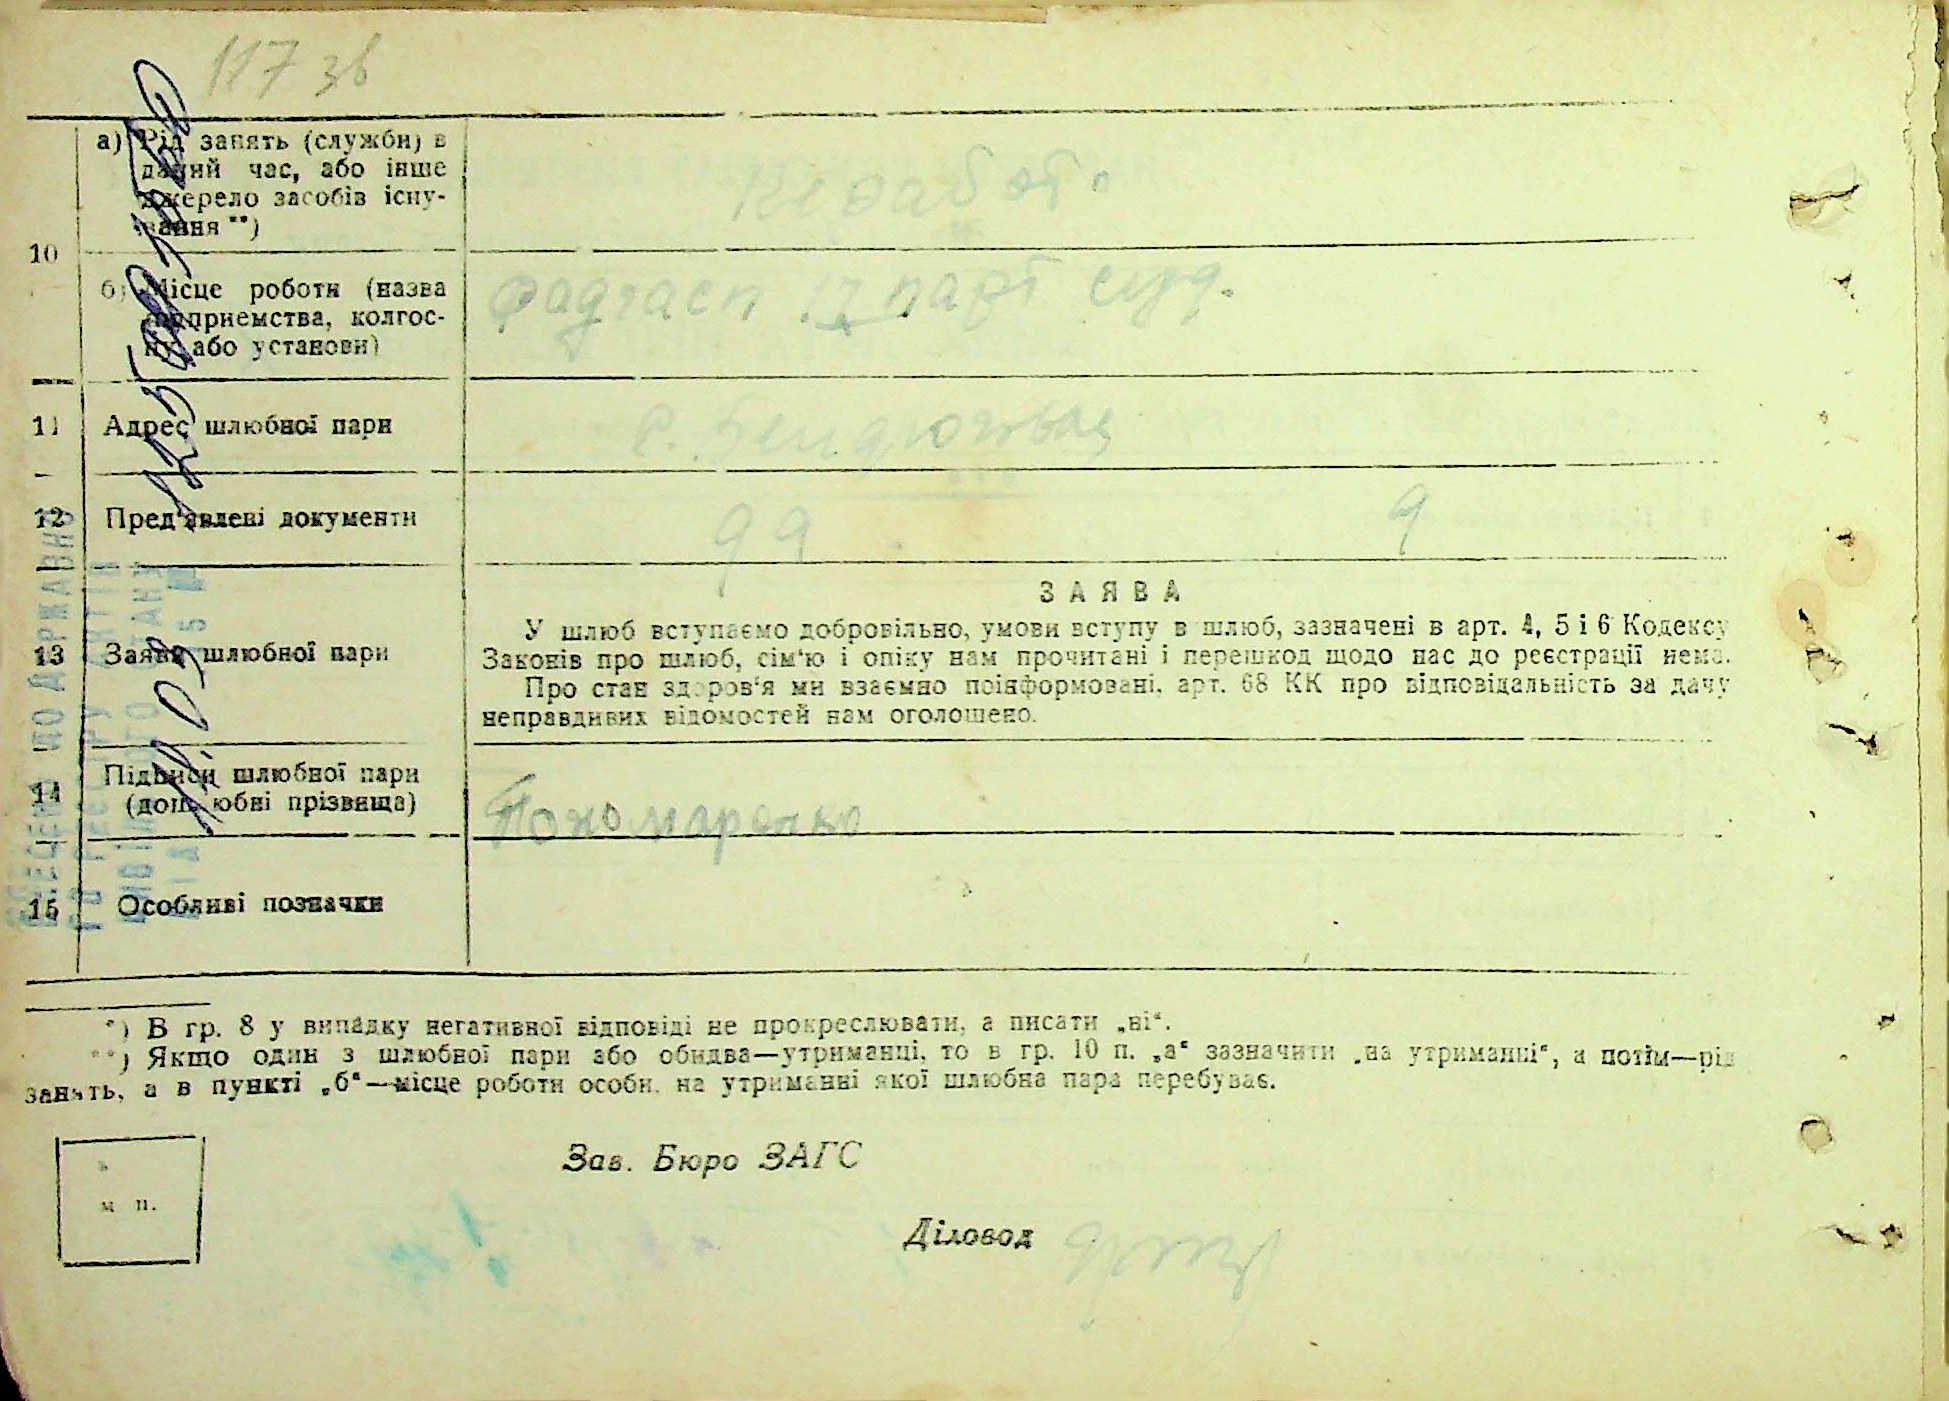 117 зв
а) Рід занять (служби) в
даний час, або інше
джерело засобів існу-
вання **)
10
б) Місце роботи (назва
підприємства, колгос-
пу або установи)
11 Адрес шлюбної пари
с.
12 Пред'явлені документи
13 Заява шлюбної пари
ЗАЯВА
У шлюб вступаємо добровільно, умови вступу в шлюб, зазначені в арт. 4, 5 і 6 Кодексу
Законів про шлюб, сім'ю і опіку нам прочитані і перешкод щодо нас до реєстрації нема.
Про стан здоров'я ми взаємно поінформовані, арт. 68 КК про відповідальність за дачу
неправдивих відомостей нам оголошено.
14 Підписи шлюбної пари
(дошлюбні прізвища)
Пономаренко
15 Особливі позначки
*) В гр. 8 у випадку негативної відповіді не прокреслювати, а писати „ні“.
**) Якщо один з шлюбної пари або обидва—утриманці, то в гр. 10 п. „а“ зазначити „на утриманні“, а потім—рід
занять, а в пункті „б“—місце роботи особи, на утриманні якої шлюбна пара перебуває.
м п.
Зав. Бюро ЗАГС
Діловод
ДО ДЕРЖАВНО